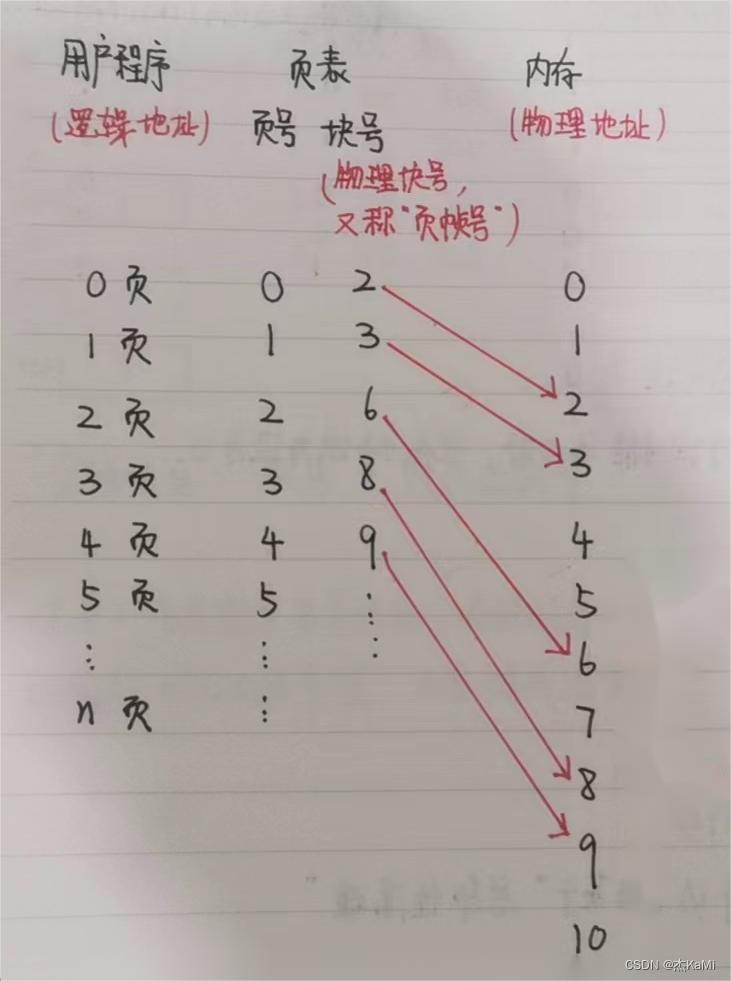 用户程序 页表 内存
(逻辑地址) 页号 块号 (物理地址)
(物理块号,
又称"页帧号")
0 页 0 2 0
1 页 1 3 1
2 页 2 6 2
3 页 3 8 3
4 页 4 9 4
5 页 5 ⋮ 5
⋮ ⋮ ⋮ 6
n 页 ⋮ 7
8
9
10
CSDN @杰KaMi